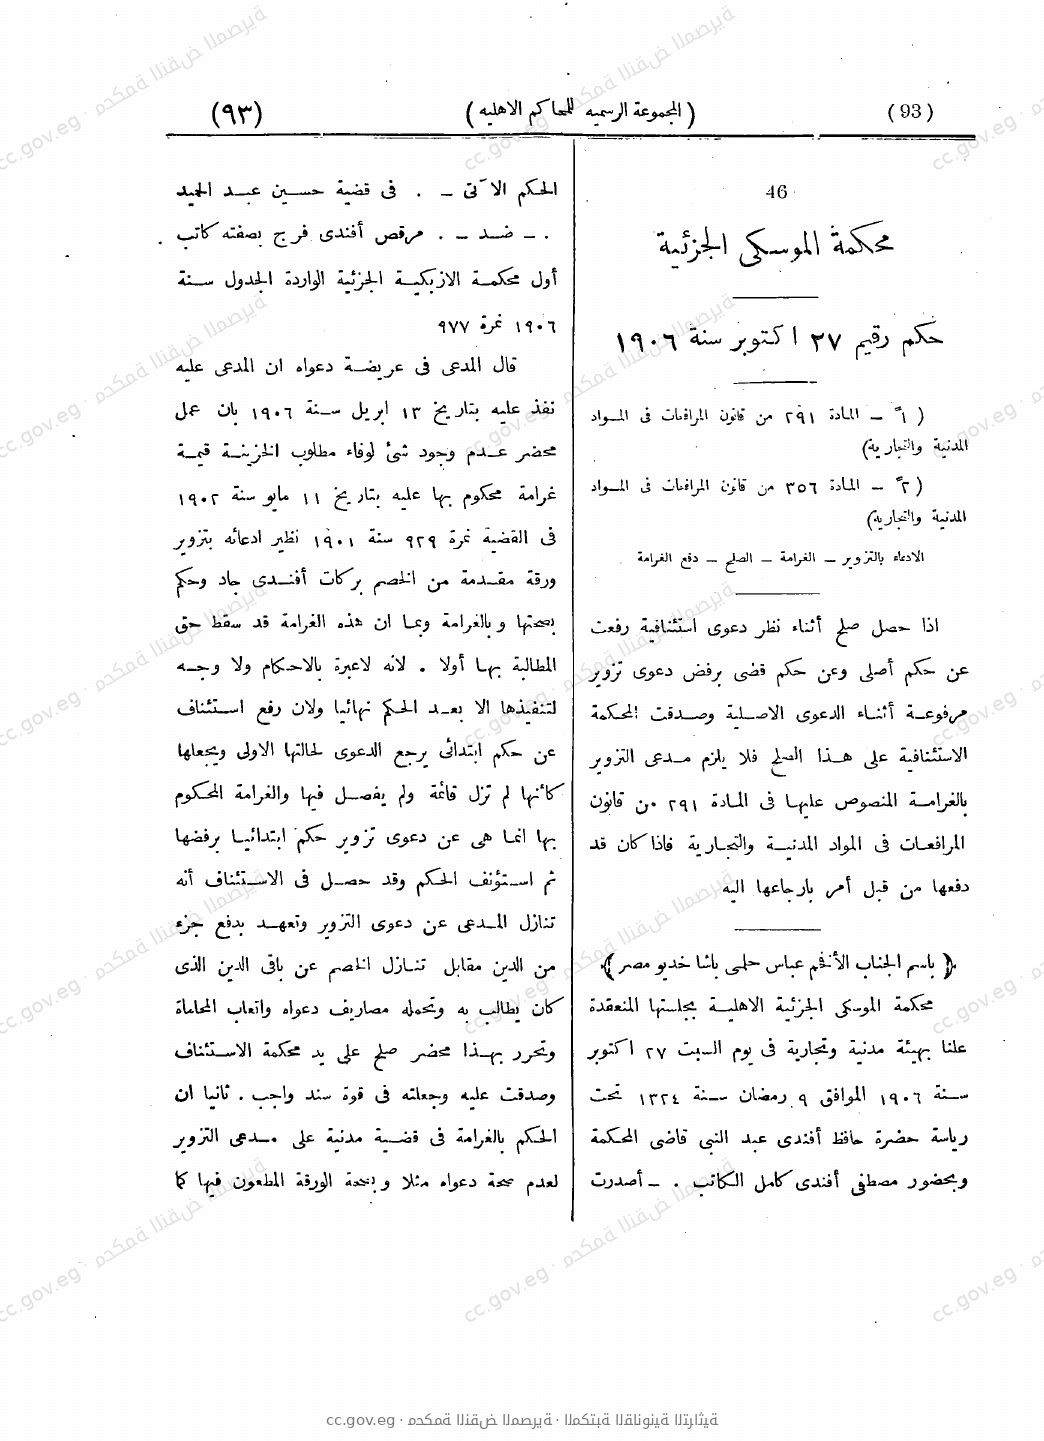 (93) (المجموعة الرسميه للمحاكم الاهليه) (٩٣)
46
محكمة الموسكى الجزئية
حكم رقيم ٢٧ اكتوبر سنة ١٩٠٦
(١ً – المادة ٢٩١ من قانون المرافعات فى المواد
المدنية والتجارية)
(٢ً – المادة ٣٥٦ من قانون المرافعات فى المواد
المدنية والتجارية)
الادعاء بالتزوير – الغرامة – الصلح – دفع الغرامة
اذا حصل صلح أثناء نظر دعوى استئنافية رفعت
عن حكم أصلى وعن حكم قضى برفض دعوى تزوير
مرفوعة أثناء الدعوى الاصلية وصدقت المحكمة
الاستئنافية على هذا الصلح فلا يلزم مدعى التزوير
بالغرامة المنصوص عليها فى المادة ٢٩١ من قانون
المرافعات فى المواد المدنية والتجارية فاذا كان قد
دفعها من قبل أمر بارجاعها اليه
(باسم الجناب الأفخم عباس حلمى باشا خديو مصر)
محكمة الموسكى الجزئية الاهلية بجلستها المنعقدة
علنا بهيئة مدنية وتجارية فى يوم السبت ٢٧ اكتوبر
سنة ١٩٠٦ الموافق ٩ رمضان سنة ١٣٢٤ تحت
رياسة حضرة حافظ أفندى عبد النبى قاضى المحكمة
وبحضور مصطفى أفندى كامل الكاتب . – أصدرت
الحكم الآتى – . فى قضية حسين عبد الحميد
. – ضد – . مرقص أفندى فرج بصفته كاتب
أول محكمة الازبكية الجزئية الواردة الجدول سنة
١٩٠٦ نمرة ٩٧٧
قال المدعى فى عريضة دعواه ان المدعى عليه
نفذ عليه بتاريخ ١٣ ابريل سنة ١٩٠٦ بان عمل
محضر عدم وجود شئ لوفاء مطلوب الخزينة قيمة
غرامة محكوم بها عليه بتاريخ ١١ مايو سنة ١٩٠٢
فى القضية نمرة ٩٢٩ سنة ١٩٠١ نظير ادعائه بتزوير
ورقة مقدمة من الخصم بركات أفندى جاد وحكم
بصحتها وبالغرامة وبما ان هذه الغرامة قد سقط حق
المطالبة بها أولا . لانه لاعبرة بالاحكام ولا وجه
لتنفيذها الا بعد الحكم نهائيا ولان رفع استئناف
عن حكم ابتدائى يرجع الدعوى لحالتها الاولى ويجعلها
كأنها لم تزل قائمة ولم يفصل فيها والغرامة المحكوم
بها انما هى عن دعوى تزوير حكم ابتدائيا برفضها
ثم استؤنف الحكم وقد حصل فى الاستئناف أنه
تنازل المدعى عن دعوى التزوير وتعهد بدفع جزء
من الدين مقابل تنازل الخصم عن باقى الدين الذى
كان يطالب به وتحمله مصاريف دعواه واتعاب المحاماة
وتحرر بهذا محضر صلح على يد محكمة الاستئناف
وصدقت عليه وجعلته فى قوة سند واجب . ثانيا ان
الحكم بالغرامة فى قضية مدنية على مدعى التزوير
لعدم صحة دعواه مثلا وبصحة الورقة المطعون فيها كما
cc.gov.eg · محكمة النقض المصرية · المكتبة القانونية التراثية